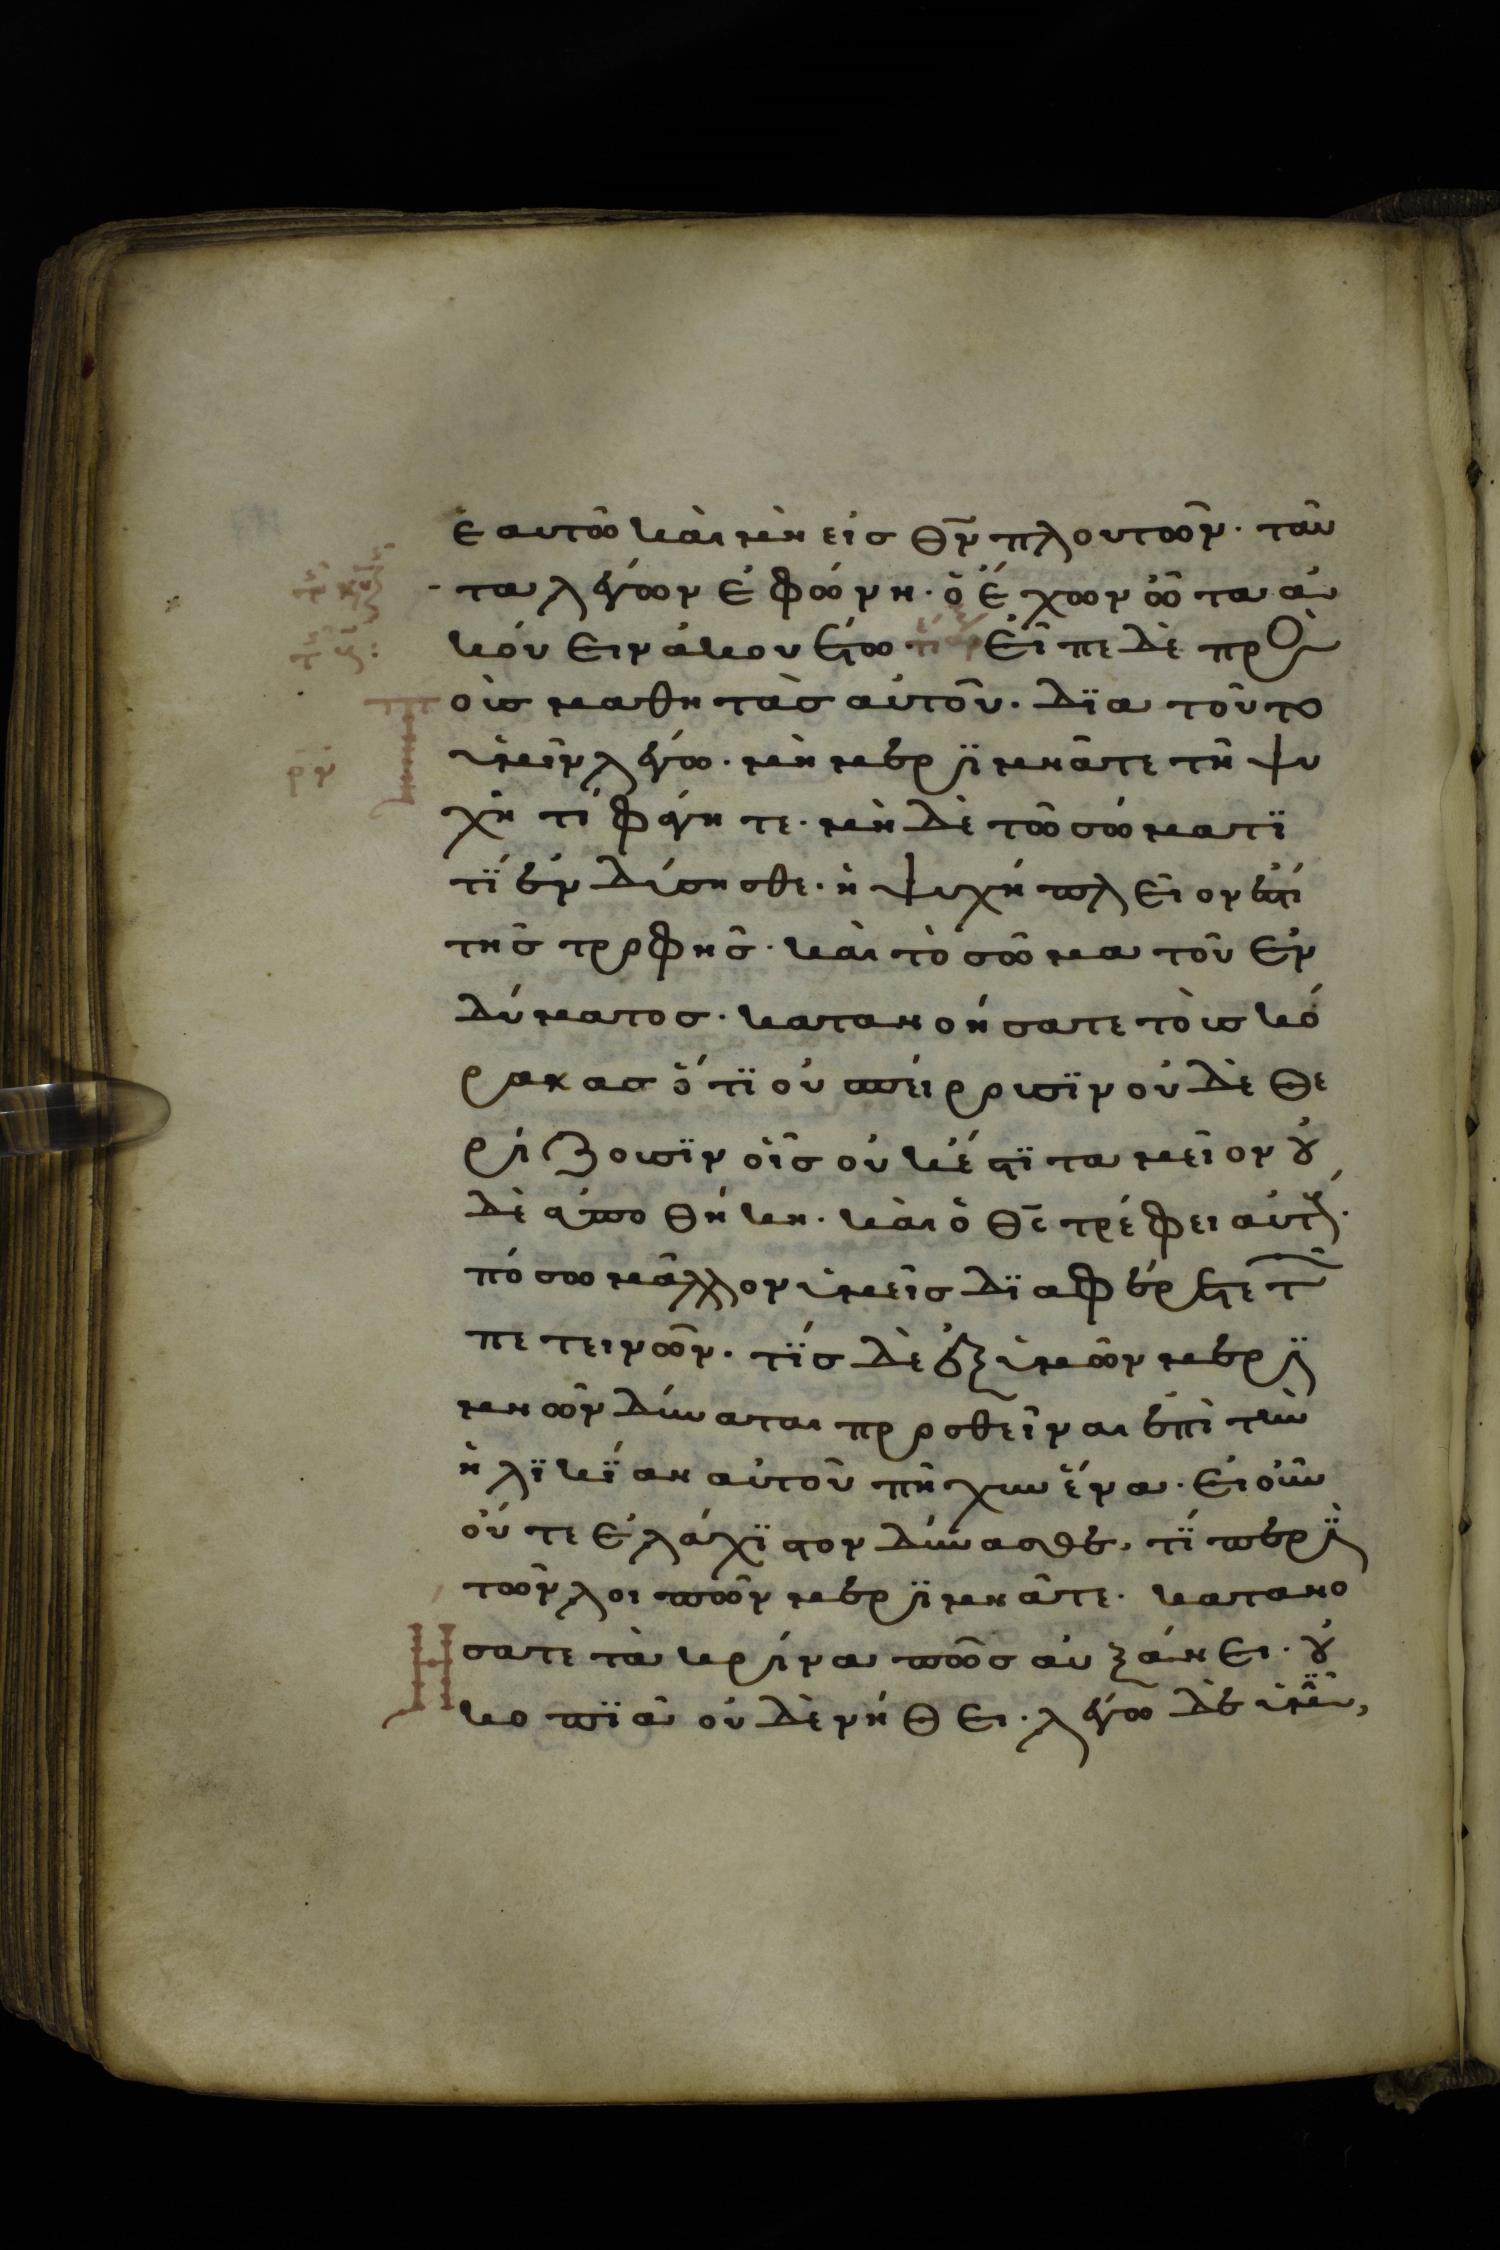 ἑαυτῶ καὶ μὴ εἰσ θ̅ν πλουτῶν· ταῦ
τα λέγων ἐφώνη· ὁ ἔχων ὦτα ἀ
κούειν ἀκουέτω τέλος Εἶπε δὲ πρὸς
Τοὺσ μαθητὰσ αὐτοῦ· δϊα τοῦτο
ὑμῖν λέγω· μὴ μερϊμνᾶτε τῆ ψυ
χῆ τί φάγητε· μὴ δὲ τῶ σώματϊ
τΐ ἐνδύσησθε· ἡ ψυχή πλεῖον ἐστί
τῆσ τροφῆσ· καὶ τὸ σῶμα τοῦ ἐν
δύματοσ· κατανοήσατε τοὺσ κό
ρακασ ὅτϊ οὐ σπείρουσϊν οὐδὲ θε
ρίζουσϊν οἷσ οὐκ ἔστϊ ταμεῖον οὐ
δὲ ἀποθήκη· καὶ ὁ θ̅ς τρέφει αὐτούς·
πόσω μᾶλλον ὑμεῖσ δϊαφέρετε τῶν
πετεινῶν· τΐσ δὲ ἐξ ὑμῶν μερϊ
μνῶν δύναται προσθεῖναι ἐπὶ τὴν
ἡλϊκΐαν αὐτοῦ πῆχυν ἕνα· εἰ οὖν
οὔτε ἐλάχϊστον δύνασθε, τΐ περϊ
τῶν λοιπῶν μερϊμνᾶτε· κατανο
Ήσατε τὰ κρίνα πῶσ αὐξάνει· οὐ
κοπϊᾶ οὐδὲ νήθει· λέγω δὲ ὑμῖν,
ρν